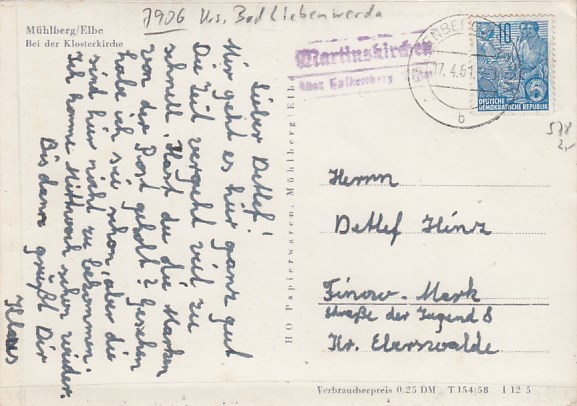 7906 Krs. Bad Liebenwerda
Mühlberg/Elbe
Bei der Klosterkirche
Lieber Detlef!
Mir geht es hier ganz gut
Die Zeit vergeht viel zu
schnell. Hast du die Marken
von der Post geholt? Gesehen
habe ich sie schon, aber die
sind hier nicht zu bekommen.
Ich komme Mittwoch schon wieder.
Bis dann grüßt Dir
Klaus
HO Papierwaren, Mühlberg/Elbe
Martinskirchen
über Falkenberg
NBERG
17.4.61
b
10
DEUTSCHE
DEMOKRATISCHE REPUBLIK
578
2,-
Herrn
Detlef Hinz
Finow-Mark
Straße der Jugend 8
Kr. Eberswalde
Verbraucherpreis 0.25 DM T 154/58 I 12 5